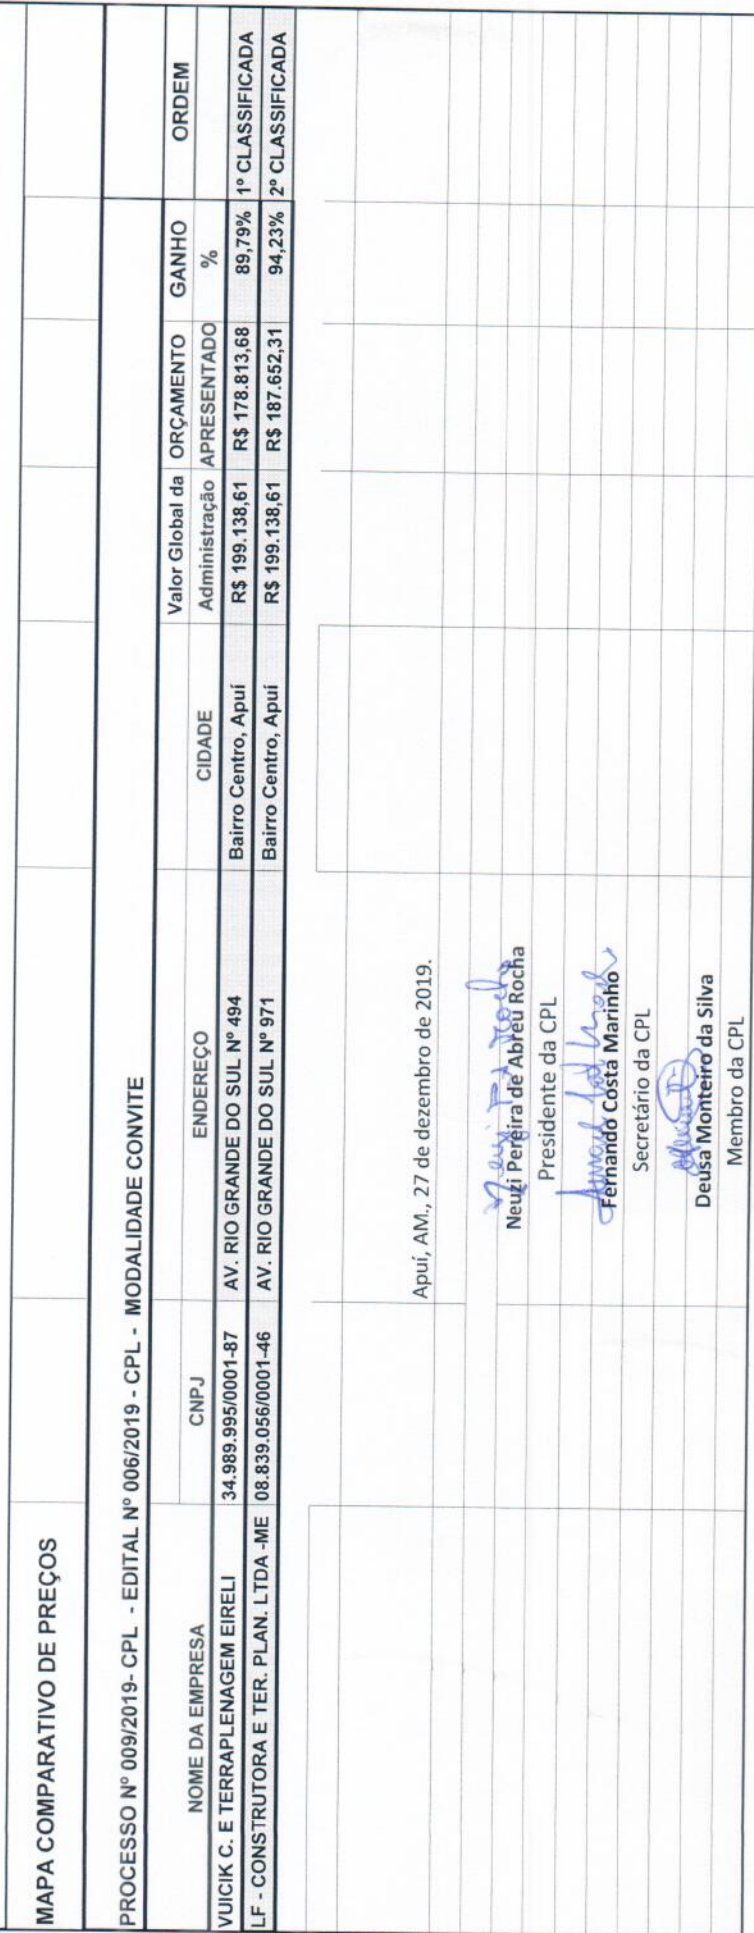 MAPA COMPARATIVO DE PREÇOS
PROCESSO Nº 009/2019- CPL - EDITAL Nº 006/2019 - CPL - MODALIDADE CONVITE
NOME DA EMPRESA CNPJ ENDEREÇO CIDADE Valor Global da Administração ORÇAMENTO APRESENTADO GANHO % ORDEM
VUICIK C. E TERRAPLENAGEM EIRELI 34.989.995/0001-87 AV. RIO GRANDE DO SUL Nº 494 Bairro Centro, Apuí R$ 199.138,61 R$ 178.813,68 89,79% 1º CLASSIFICADA
LF - CONSTRUTORA E TER. PLAN. LTDA -ME 08.839.056/0001-46 AV. RIO GRANDE DO SUL Nº 971 Bairro Centro, Apuí R$ 199.138,61 R$ 187.652,31 94,23% 2º CLASSIFICADA
Apuí, AM., 27 de dezembro de 2019.
Neuzi Pereira de Abreu Rocha
Presidente da CPL
Fernando Costa Marinho
Secretário da CPL
Deusa Monteiro da Silva
Membro da CPL